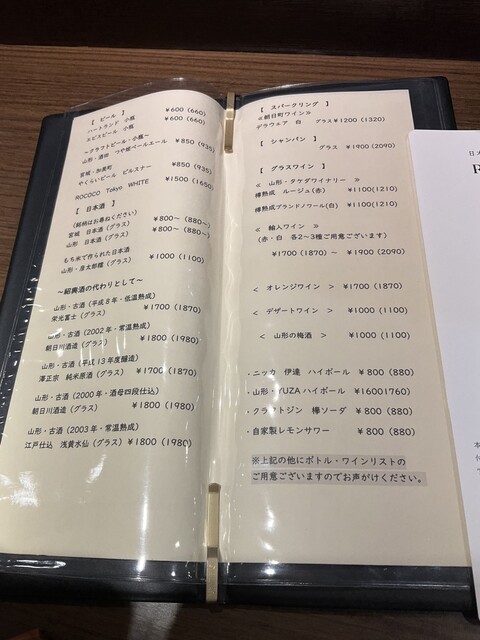 【 ビール 】
ハートランド 小瓶 ¥600 (660)
エビスビール 小瓶 ¥600 (660)
～クラフトビール・小瓶～
山形・酒田 つや姫ペールエール ¥850 (935)
宮城・加美町
やくらいビール ピルスナー ¥850 (935)
ROCOCO Tokyo WHITE ¥1500 (1650)
【 日本酒 】
(銘柄はお尋ねください)
宮城 日本酒 (グラス) ¥800～ (880～)
山形 日本酒 (グラス) ¥800～ (880～)
もち米で作られた日本酒
山形・彦太郎糯 (グラス) ¥1000 (1100)
～紹興酒の代わりとして～
山形・古酒 (平成8年・低温熟成)
栄光冨士 (グラス) ¥1700 (1870)
山形・古酒 (2002年・常温熟成)
朝日川酒造 (グラス) ¥1800 (1980)
山形・古酒 (平成13年度醸造)
澤正宗 純米原酒 (グラス) ¥1700 (1870)
山形・古酒 (2000年・酒母四段仕込)
朝日川酒造 (グラス) ¥1800 (1980)
山形・古酒 (2003年・常温熟成)
江戸仕込 浅黄水仙 (グラス) ¥1800 (1980)
【 スパークリング 】
≪朝日町ワイン≫
デラウェア 白 グラス ¥1200 (1320)
【 シャンパン 】
グラス ¥1900 (2090)
【 グラスワイン 】
≪ 山形・タケダワイナリー ≫
樽熟成 ルージュ(赤) ¥1100(1210)
樽熟成ブランドノワール(白) ¥1100(1210)
≪ 輸入ワイン ≫
(赤・白 各2～3種ご用意ございます)
¥1700 (1870) ～ ¥1900 (2090)
< オレンジワイン > ¥1700 (1870)
< デザートワイン > ¥1000 (1100)
< 山形の梅酒 > ¥1000 (1100)
・ニッカ 伊達 ハイボール ¥ 800 (880)
・山形・YUZA ハイボール ¥1600 1760)
・クラフトジン 欅ソーダ ¥ 800 (880)
・自家製レモンサワー ¥ 800 (880)
※上記の他にボトル・ワインリストの
ご用意ございますのでお声がけください。